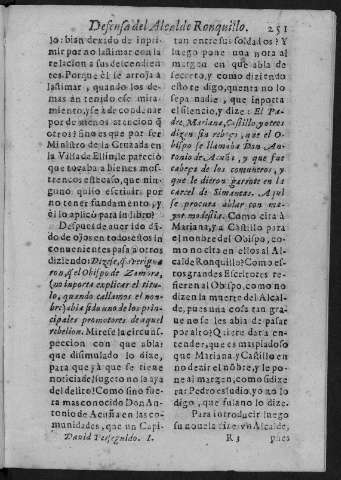 Defensa del Alcalde Ronquillo. 251
lo: bian dexado de inpri-
mir por no lastimar con la
relacion a sus descendien
tes. Porque èl se arroja à
lastimar, quando los de-
mas àn tenido ese mira-
miento, y se à de condenar
por de menos atencion q̃
otros? sino es que por ser
Ministro de la Cruzada en
la Valla de Ellin, le pareciò
que tocava a bienes mos-
trencos este caso, que nin-
guno quiso escrivir por
no tener fundamento, y
èl lo aplicò para su libro?
Despues de aver ido dãdo
de ojos en todos estos in
convenientes pasa a otros
diziendo: Dizese, q̃ averiguà
ron, q̃ el Obispo de Zamora,
(no inporta explicar el titu-
lo, quando callamos el non-
bre) abia sido uno de los prin-
cipales promotores de aquel
rebelion. Mirese la circuns-
peccion con que abla:
que disimulado lo dize,
para que ya que se tiene
noticia del sugeto no la aya
del delito? Como sino fue-
ra mas conocido Don An-
tonio de Acuña en las co-
munidades, que un Capi-
tan entre sus soldados? Y
luego pone una nota al
margen en que abla de
secreto, y como diziendo
esto te digo, quenta no lo
sepa nadie, que inporta
el silencio, y dize: El Pa-
dre, Mariana, Castillo, y otros
dizen sin reboço, que el O-
bispo se llamaba Don An-
tonio de Acuña, y que fue
cabeça de los comuneros, y
que le dieron garrote en la
carcel de Simancas. Aqui
se procura ablar con ma-
yor modestia. Como cita à
Mariana, y a Castillo para
el nonbre del Obispo, co-
mo no cita en ellos al Al-
calde Ronquillo? Como es-
tos grandes Escritores re-
fieren al Obispo, como no
dizen la muerte del Alcal-
de, pues una cosa tan gra-
ve no se les abia de pasar
por alto? Quiere dar a en-
tender, que es mas piadoso
que Mariana, y Castillo en
no dezir el nõbre, y le po-
ne al margen, como si dixe
ra: Pedro es judio, yo no lo
digo, que fulano lo dize.
Para introducir luego
su novela dize: vn Alcalde,
David Perseguido. I. R 3 pues